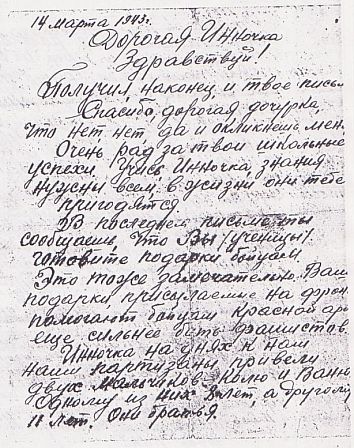 14 марта 1943г.
Дорогая Инночка
Здравствуй!
Получил, наконец, и твое письм
Спасибо, дорогая дочурка,
что нет нет да и окликнешь мен
Очень рад за твои школьные
успехи. Учись, Инночка, знания
нужны всем, в жизни они тебе
пригодятся
В последнем письме ты
сообщаешь, что Вы /ученицы/
готовите подарки бойцам.
Это тоже замечательно. Ваш
подарки, присылаемые на фрон
помогают бойцам Красной ар
еще сильнее бить фашистов.
Инночка на днях к нам
наши партизаны привели
двух мальчиков Колю и Ваню
Одному из них 8 лет, а другому
11 лет. Они братья